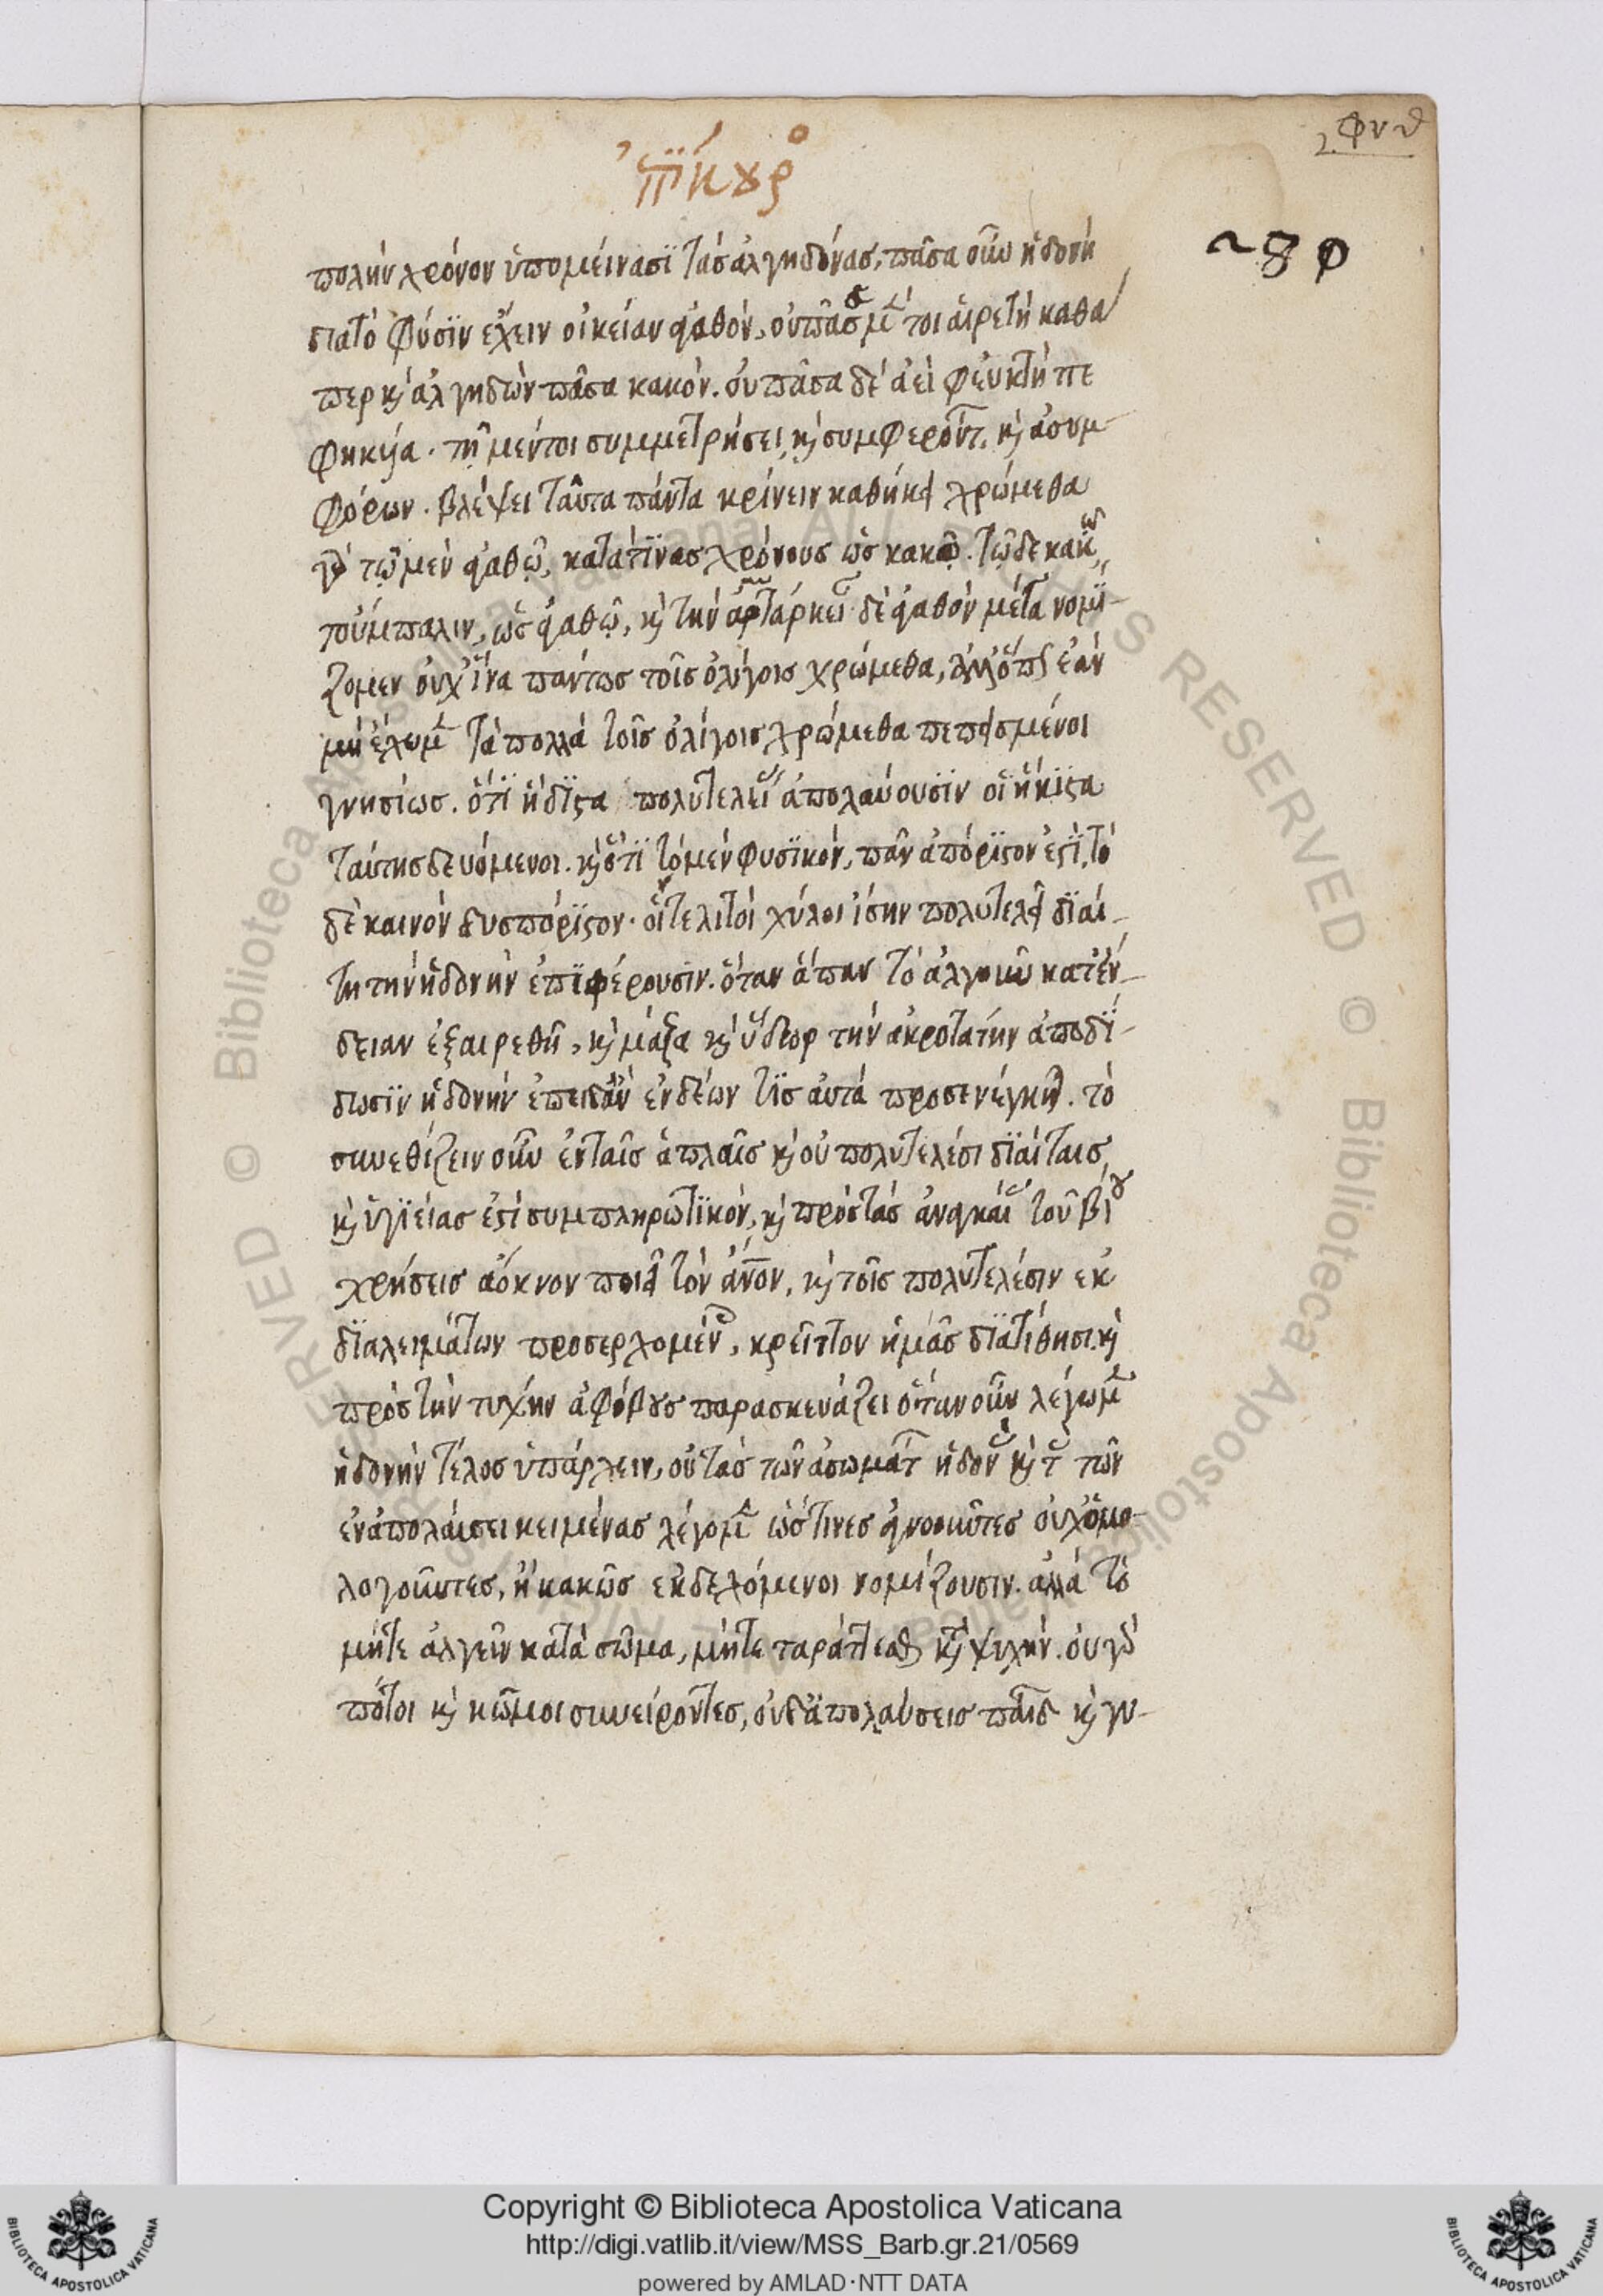 ἐπίκουρος
φνθ
280
πολὴν χρόνον ὑπομείνασϊ τὰς ἀλγηδόνας, πᾶσα οὖν ἡδονὴ
διατὸ φύσϊν ἔχειν οἰκείαν ἀγαθόν, οὐ πᾶσα μέντοι αἱρετὴ καθά
περ καὶ ἀλγηδὼν πᾶσα κακόν. οὐ πᾶσα δὲ ἀεὶ φευκτὴ πε
φηκυῖα. τῇ μέντοι συμμετρήσει, καὶ συμφερόντων, καὶ ἀσυμ-
φόρων. βλέψει ταῦτα πάντα κρίνειν καθήκει χρώμεθα
γὰρ τῷ μὲν ἀγαθῷ, κατὰ τϊνας χρόνους ὡς κακῷ. τῷ δὲ κακῷ,
τοὔμπαλιν, ὡς ἀγαθῷ, καὶ τὴν αὐτάρκειαν δὲ ἀγαθὸν μέγα νομϊ-
ζομεν οὐχ ἵνα πάντως τοῖς ὀλίγοις χρώμεθα, ἀλλ' ὅπως ἐὰν
μὴ ἔχωμεν τὰ πολλὰ τοῖς ὀλίγοις χρώμεθα πεπεισμένοι
γνησίως. ὅτϊ ἥδϊστα πολυτελείας ἀπολαύουσϊν οἱ ἥκϊστα
ταύτης δευόμενοι. καὶ ὅτϊ τὸ μὲν φυσϊκὸν, πᾶν ἀπόρϊστον ἐστϊ, τὸ
δὲ καινὸν δυσπόρϊστον. οἵ τε λιτοὶ χύλοι ἴσην πολυτελεῖ δϊαί-
τῃ τὴν ἡδονὴν ἐπϊφέρουσϊν. ὅταν ἅπαν τὸ ἀλγοῦν κατ' ἔν-
δειαν ἐξαιρεθῇ, καὶ μάζα καὶ ὕδωρ τὴν ἀκροτάτην ἀποδϊ-
δωσϊν ἡδονὴν ἐπειδὰν ἐνδέων τϊς αὐτὰ προσενέγκηται. τὸ
συνεθίζειν οὖν ἐν ταῖς ἁπλαῖς καὶ οὐ πολυτελέσι δϊαίταις,
καὶ ὑγϊείας ἐστὶ συμπληρωτϊκόν, καὶ πρὸς τὰς ἀναγκαίας τοῦ βίου
χρήσεις ἄοκνον ποιεῖ τὸν ἄνον, καὶ τοῖς πολυτελέσιν ἐκ
δϊαλειμάτων προσερχομένους, κρεῖττον ἡμᾶς δϊατίθησι. καὶ
πρὸς τὴν τύχην ἀφόβους παρασκευάζει ὅταν οὖν λέγωμεν
ἡδονὴν τέλος ὑπάρχειν, οὐ τὰς τῶν ἀσωμάτων ἡδονὰς καὶ τὰς τῶν
ἐν ἀπολαύσει κειμένας λέγομεν ὥς τινες ἀγνοοῦντες οὐχ ὁμο-
λογοῦντες, ἢ κακῶς ἐκδεχόμενοι νομίζουσιν. ἀλλὰ τὸ
μήτε ἀλγεῖν κατὰ σῶμα, μήτε ταράττεσθαι κατὰ ψυχήν. οὐ γὰρ
πότοι καὶ κῶμοι συνείροντες, οὐδ' ἀπολαύσεις παίδων καὶ γυ-
Copyright © Biblioteca Apostolica Vaticana
http://digi.vatlib.it/view/MSS_Barb.gr.21/0569
powered by AMLAD·NTT DATA